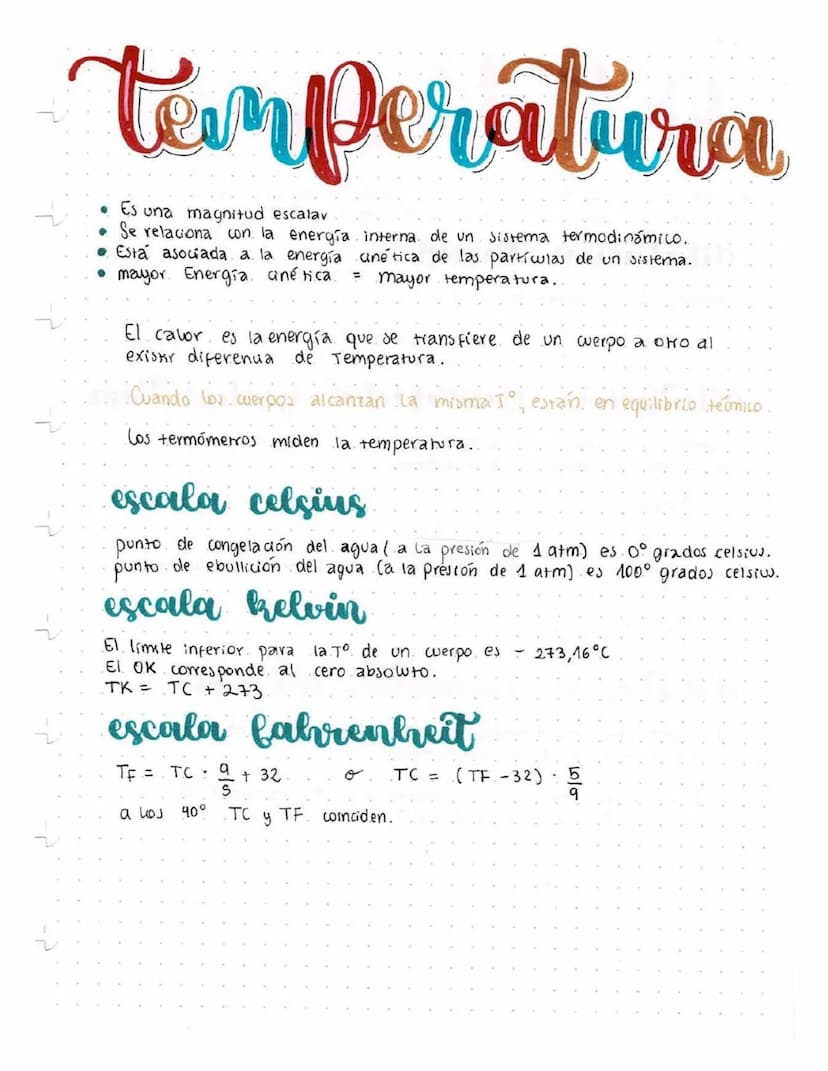 temperatura
• Es una magnitud escalar
• Se relaciona con la energía interna de un sistema termodinámico.
• Está asociada a la energía cinética de las partículas de un sistema.
• mayor Energía cinética = mayor temperatura.
El calor es la energía que se transfiere de un cuerpo a otro al
existir diferencia de Temperatura.
Cuando los cuerpos alcanzan la misma T°, están en equilibrio térmico.
Los termómetros miden la temperatura.
escala celsius
punto de congelación del agua (a la presión de 1 atm) es 0° grados celsius.
punto de ebullición del agua (a la presión de 1 atm) es 100° grados celsius.
escala kelvin
El límite inferior para la T° de un cuerpo es - 273,16°C
El 0K corresponde al cero absoluto.
TK = TC + 273
escala fahrenheit
TF = TC · 9/5 + 32 o TC = (TF - 32) · 5/9
a los 40° TC y TF coinciden.